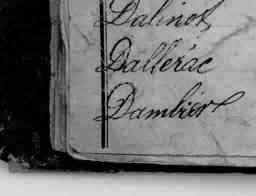 Dalinot
Dallerac
Dambier